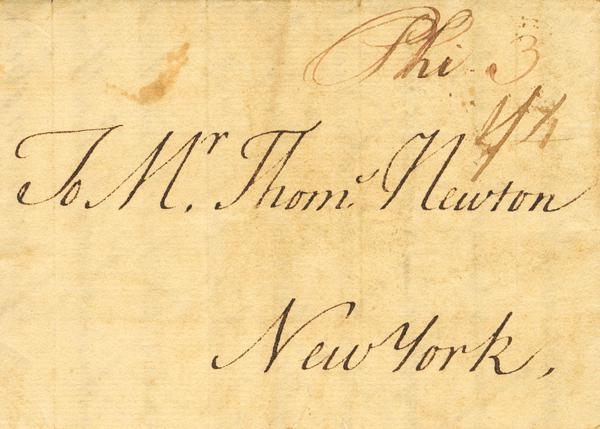 Phi 3
To Mr. Thoms. Newton
New York.